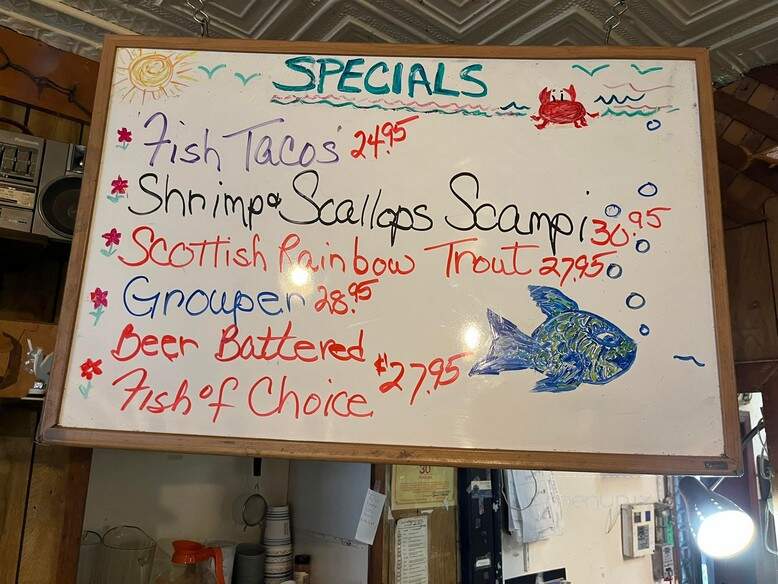 SPECIALS
'Fish Tacos' 24.95
Shrimp & Scallops Scampi 30.95
Scottish Rainbow Trout 27.95
Grouper 28.95
Beer Battered
Fish of Choice $27.95
30